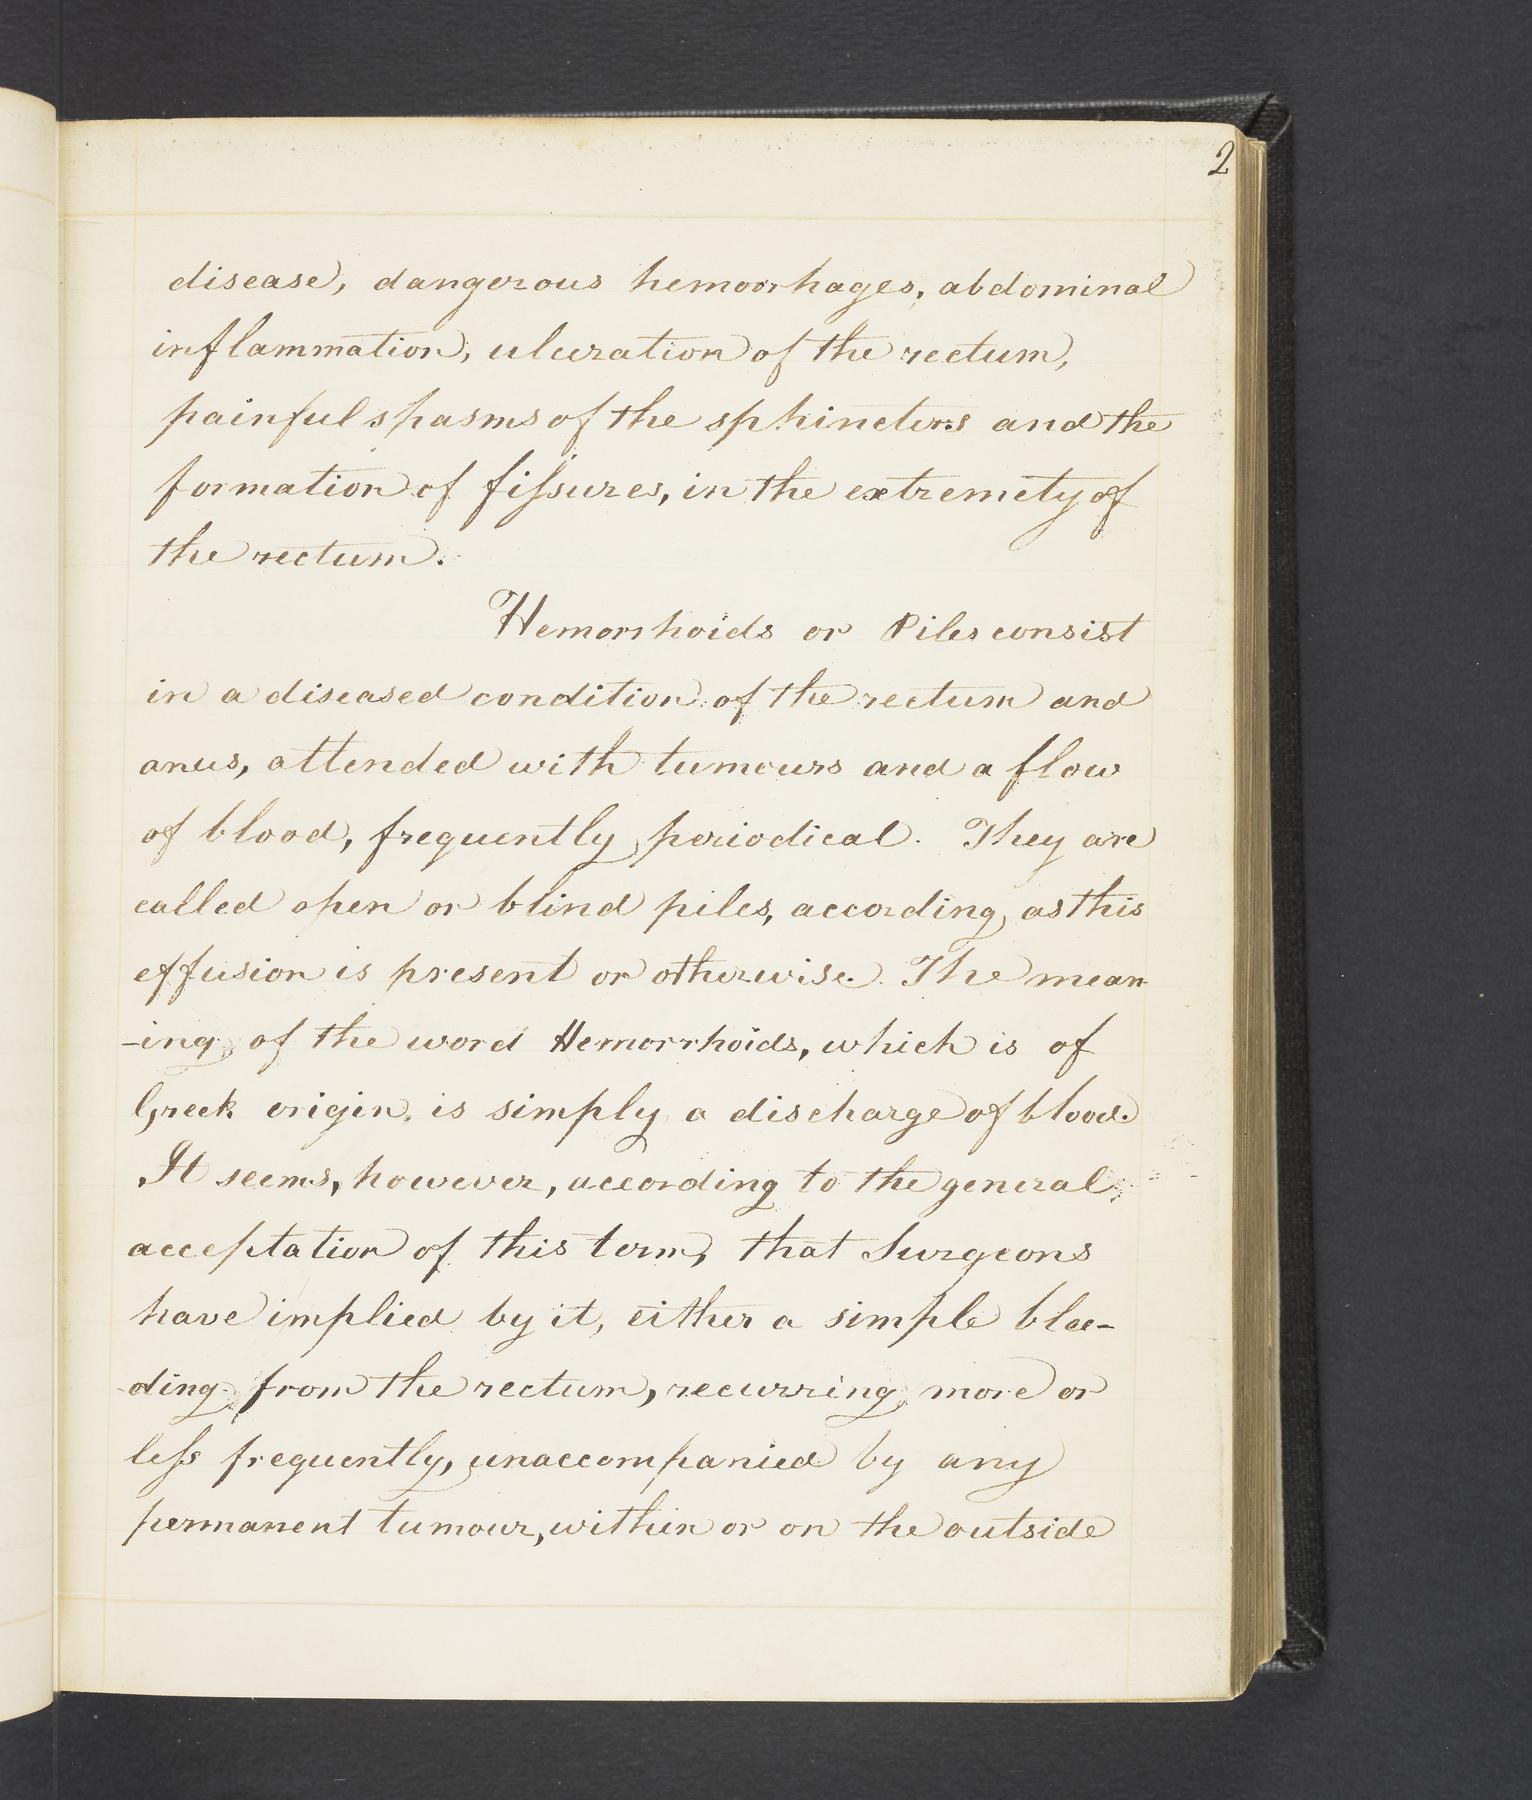 2
disease, dangerous hemoorhages, abdominal
inflammation, ulceration of the rectum,
painful spasms of the sphincters and the
formation of fiſsures, in the extremety of
the rectum.
Hemorrhoids or Piles consist
in a diseased condition of the rectum and
anus, attended with tumours and a flow
of blood, frequently periodical. They are
called open or blind piles, according as this
effusion is present or otherwise. The mean
-ing of the word Hemorrhoids, which is of
Greek origin, is simply a discharge of blood.
It seems, however, according to the general
acceptation of this term, that Surgeons
have implied by it, either a simple blee-
-ding from the rectum, recurring more or
leſs frequently, unaccompanied by any
permanent tumour, within or on the outside